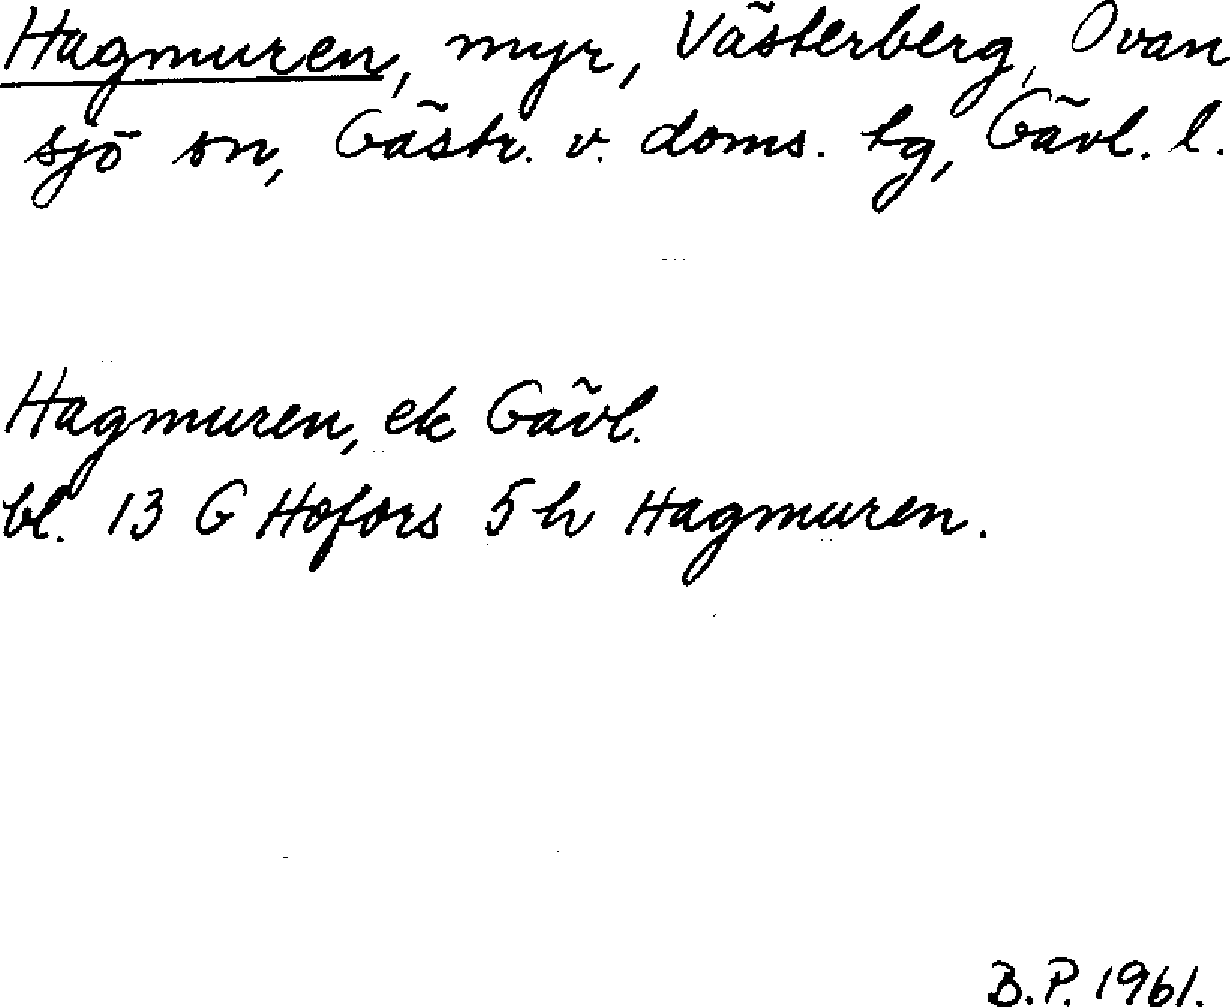 Hagmuren, myr, Västerberg, Ovan
sjö sn, Gästr. v. doms. tg, Gävl. l.
Hagmuren, ek Gävl.
bl. 13 G Hofors 5 h Hagmuren.
B.P. 1961.